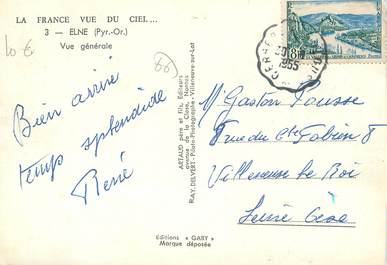 LA FRANCE VUE DU CIEL...
3 - ELNE (Pyr.-Or.)
Vue générale
10 €
66
Bien arrivé
temps splendide
René
ARTAUD père et fils, Editeurs
avenue de la Close, Nantes
RAY. DELVERT - Pilote-Photographe - Villeneuve-sur-Lot
Editions « GABY »
Marque déposée
1955
M. Gaston Pousse
rue du Cte Fabien 8
Villeneuve le Roi
Seine Oise